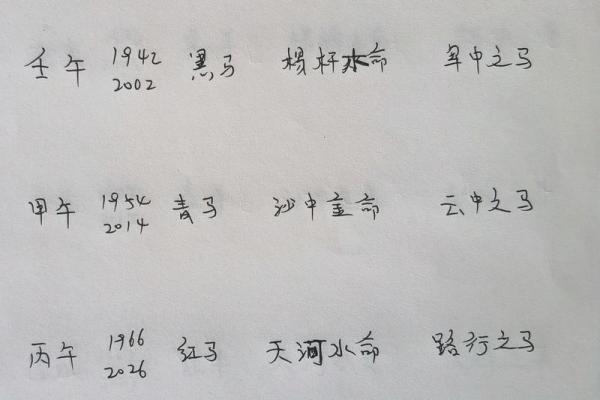 壬午 1942 黑马 杨柳木命 军中之马
2002
甲午 1954 青马 沙中金命 云中之马
2014
丙午 1966 红马 天河水命 路行之马
2026